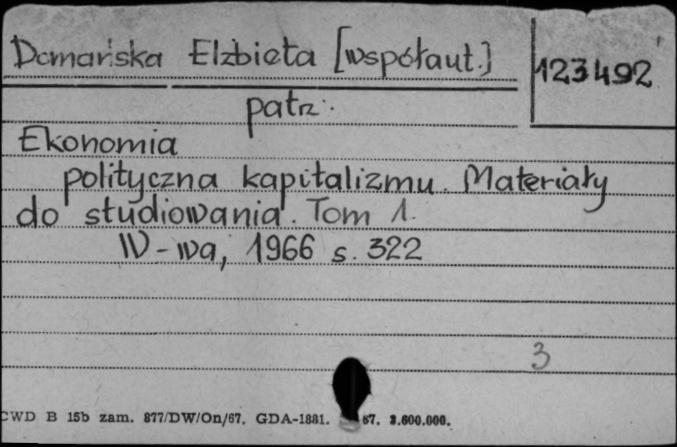 Domańska Elżbieta [współaut.]
123492
patrz:
Ekonomia
polityczna kapitalizmu. Materiały
do studiowania. Tom 1.
W-wa, 1966 s. 322
3
CWD B 15b zam. 877/DW/On/67. GDA-1881. 67. 3.600.000.